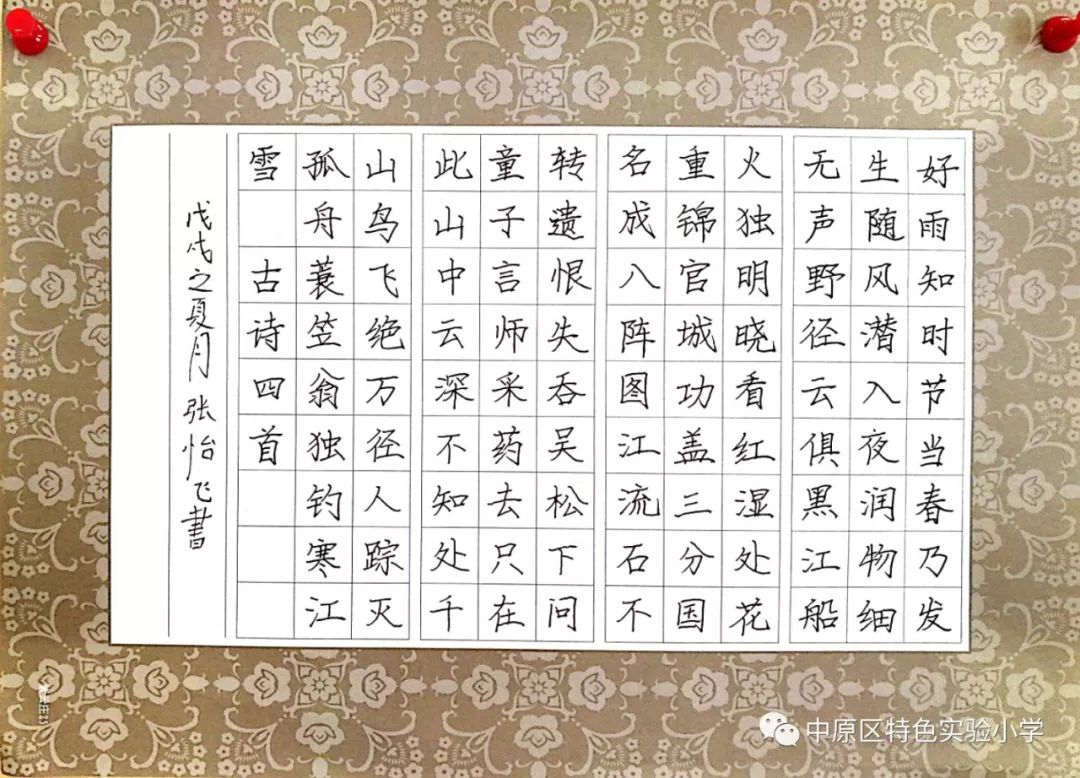 好雨知时节当春乃发
生随风潜入夜润物细
无声野径云俱黑江船
火独明晓看红湿处花
重锦官城功盖三分国
名成八阵图江流石不
转遗恨失吞吴松下问
童子言师采药去只在
此山中云深不知处千
山鸟飞绝万径人踪灭
孤舟蓑笠翁独钓寒江
雪 古诗四首
戊戌之夏月张怡飞書
中原区特色实验小学